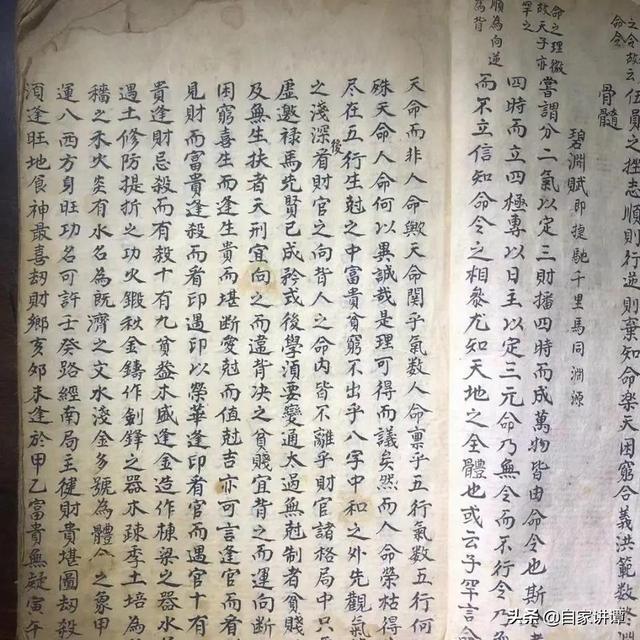 之令故云
命令
伍員之挫志順則行逆則棄知命樂天困窮合義洪範數
骨髓
碧淵賦即捷馳千里馬同淵源
命之理微
故天子亦
罕之
嘗謂分二氣以定三財播四時而成萬物皆由命令也斯
四時而立四極專以日主以定三元命乃無令而不行令乃無
順為向逆
為背
而不立信知命令之相參尤知天地之全體也或云子罕言命
天命而非人命歟天命関乎氣数人命禀乎五行氣数五行何
殊天命人命何以異誠哉是理可得而議矣然而人命榮枯得
尽在五行生尅之中富貴貧窮不出乎八字中和之外先觀氣
之淺深後看財官之向背人之命内皆不離乎財官諸格局中只
虛邀禄馬先賢已成矜式後學須要變通太過無尅制者貧賤
及無生扶者天刑宜向之而違背决之貧賤宜背之而運向断
困窮喜生而逢生貴而堪断愛尅而值尅吉亦可言逢官而看
見財而富貴逢殺而看印遇印以榮華逢印看官而遇官十有
貴逢財忌殺而有殺十有九貧盖木盛逢金造作棟梁之器水
遇土修防提折之功火鍛秋金鑄作劍鋒之器木疎季土培為
穡之禾火炎有水名為既濟之文水淺金多號為體仝之象甲
運八西方身旺功名可許壬癸路經南局主健財貴堪圖劫殺
須逢旺地食神最喜劫財鄉亥夘未逢於甲乙富貴無疑寅午
头条 @自家讲谭